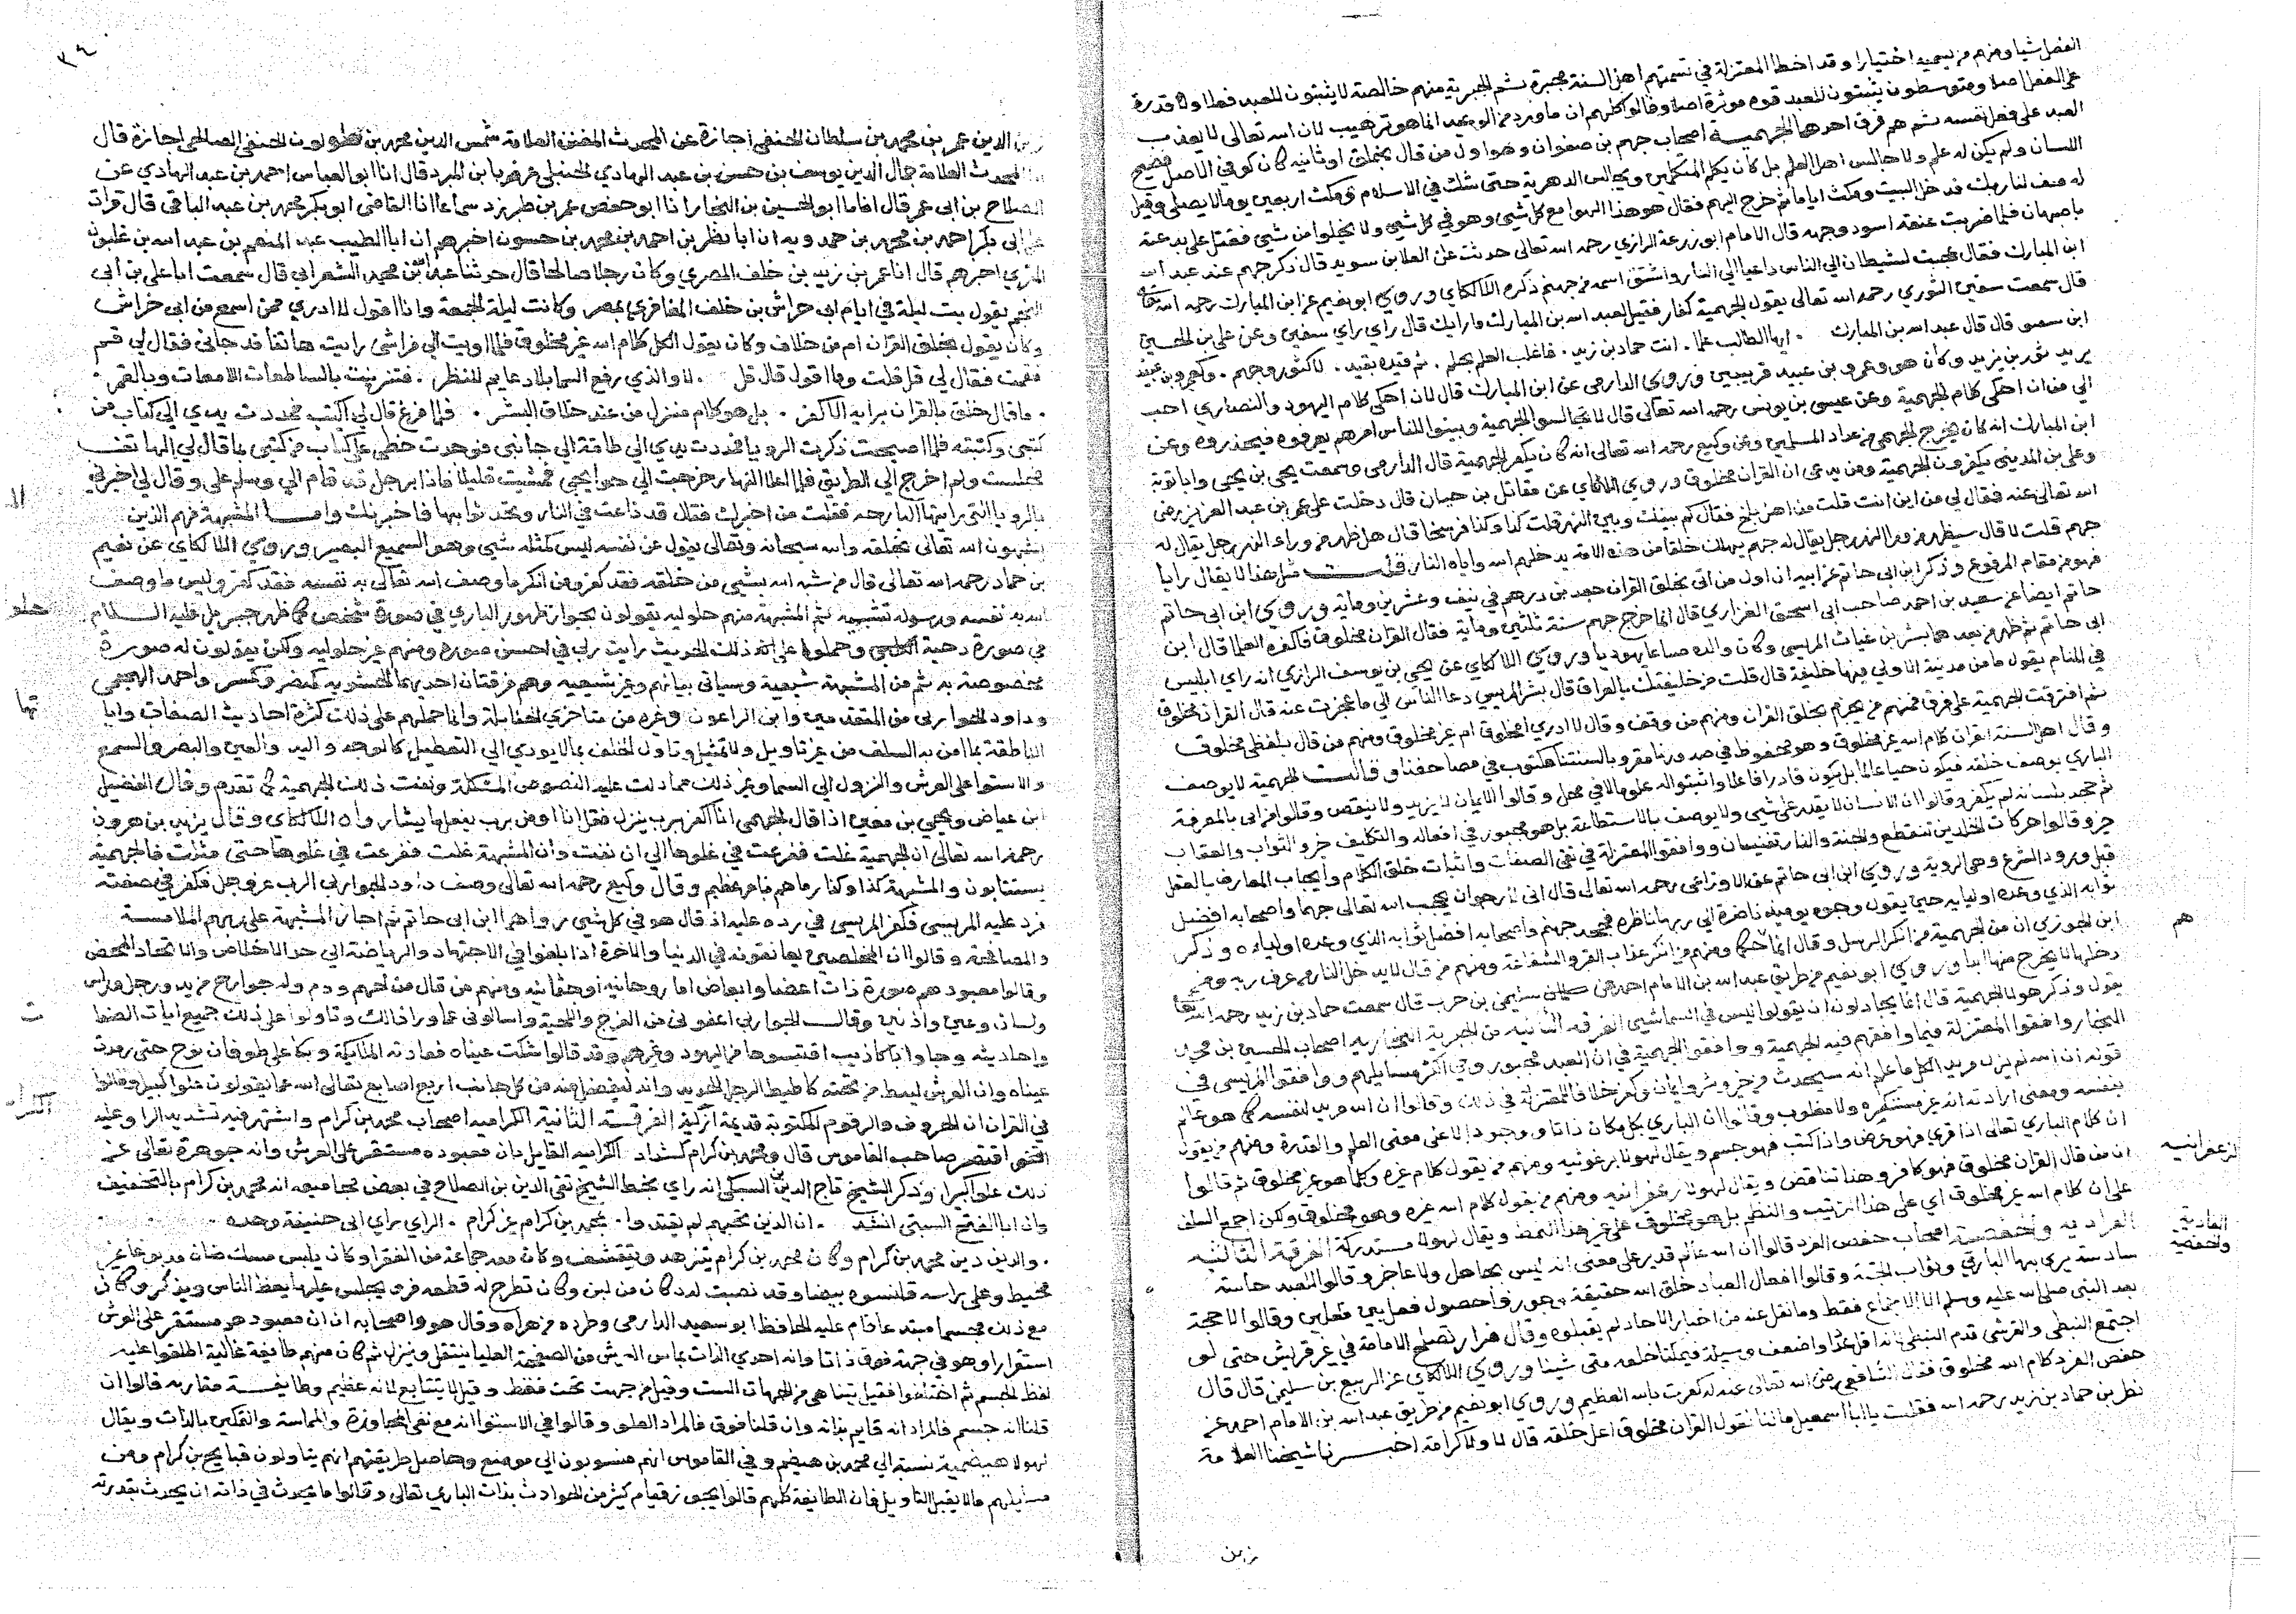 الفعل شيا ومنهم من يسميه اختيارا وقد اخطا المعتزلة في تسميتهم اهل السنة مجبرة ثم الجبرية منهم خالصة لا يثبتون للعبد فعلا ولا قدرة
على الفعل اصلا ومتوسطون يثبتون للعبد قوه موثرة اصلا وقالوا كلهم ان ما ورد من الوعيد انما هو ترهيب لان الله تعالى لا يعذب
العبد على فعل نفسه ثم هم فرق احدها الجهمية اصحاب جهم بن صفوان وهو اول من قال بخلق اوثانيه كان كوفي الاصل فصيح
اللسان ولم يكن له علم ولا جالس اهل العلم بل كان يكلم المتكلمين ويجالس الدهرية حتى شك في الاسلام ومكث اربعين يوما لا يصلي وقيل
له صف لنا ربك فدخل البيت ومكث اياما ثم خرج اليهم فقال هو هذا الهوا مع كل شيى وهو في كل شيى ولا يخلوا من شيى فقتل على بدعته
باصبهان فلما ضربت عنقه اسود وجهه قال الامام ابو زرعة الرازي رحمه الله تعالى حدثت عن العلا بن سويد قال ذكر جهم عند عبد الله
ابن المبارك فقال عجبت لشيطان الي الناس داعيا الي النار واشتق اسمه من جهنم ذكره اللالكاي وروي ابو نعيم عن ابن المبارك رحمه الله تعالى
قال سمعت سفين الثوري رحمه الله تعالى يقول الجهمية كفار فقيل لعبد الله بن المبارك وما رايك قال رايي راي سفين وعن علي بن الحسين
قال قال عبد الله بن المبارك . ايها الطالب علما . ائت حماد بن زيد . فاطلب العلم بحلم . ثم قيده بقيد . لا كثور وجهم . وكعمرو بن عبيد
يريد ثور بن يزيد وكان هو وعمرو بن عبيد قريبين وروي الدارمي عن ابن المبارك قال لان احكي كلام اليهود والنصاري احب
الي من ان احكي كلام الجهمية وعن عيسى بن يونس رحمه الله تعالى قال لا تجالسوا الجهمية وبينوا للناس امرهم يعرفوه فيحذروه وعن
ابن المبارك انه كان يخرج الجهمي من عداد المسلمين وعن وكيع رحمه الله تعالى انه كان يكفر الجهمية قال الدارمي وسمعت يحيى بن يحيى وابا توبة
وعلي بن المديني يكفرون الجهمية ومن يدعي ان القران مخلوق وروي اللالكاي عن مقاتل بن حيان قال دخلت على عمر بن عبد العزيز رضي
الله تعالى عنه فقال لي من اين انت قلت من اهل بلخ فقال كم بينك وبين النهر قلت كذا وكذا فرسخا قال هل ظهر من وراء النهر رجل يقال له
جهم قلت لا قال سيظهر من ورا النهر رجل يقال له جهم يهلك خلقا من هذه الامة يدخلهم الله واياه النار مثل هذا لا يقال رايا
فهو من مقام المرفوع وذكر ابن ابي حاتم عن ابيه ان اول من اتى بخلق القران جعد بن درهم في نيف وعشرين ومايه وروي ابن ابي حاتم
حاتم ايضا عن سعيد بن احمد صاحب ابي اسحق الفزاري قال انما خرج جهم سنة ثلثين وماية فقال القران مخلوق فاكفره العلما قال ابن
ابي حاتم ثم ظهر من بعدهما بشر بن غياث المريسي وكان والده صباغا يهوديا وروي اللالكاي عن يحيى بن يوسف الرازي انه راي ابليس
في المنام يقول ما من مدينة الا ولي فيها خليفة قال قلت من خليفتك بالعراق قال بشر المريسي دعا الناس الي ما عجزت عنه قال القران مخلوق
ثم افترقت الجهمية على فرق فمنهم من يجزم بخلق القران ومنهم من وقف وقال لا ادري امخلوق ام غير مخلوق ومنهم من قال بلفظي مخلوق
وقال اهل السنة القران كلام الله غير مخلوق وهو محفوظ في صدورنا مقرو بالسنتنا مكتوب في مصاحفنا وقالت الجهمية لا يوصف
الباري بوصف خلقه فيكون حيا عالما بل يكون قادرا فاعلا واثبتوا له علوما لا في محل وقالوا الايمان لا يزيد ولا ينقص وقالوا من اتى بالمعرفة
ثم جحد بلسانه لم يكفر وقالوا ان الانسان لا يقدر على شيى ولا يوصف بالاستطاعة بل هو مجبور في افعاله والتكليف جبر والثواب والعقاب
جبر وقالوا حركات الخالدين تنقطع والجنة والنار تفنيان ووافقوا المعتزلة في نفي الصفات واثبات خلق الكلام وايجاب المعارف بالعقل
قبل ورود الشرع وهي الرويه وروي ابن ابي حاتم عن الاوزاعي رحمه الله تعالى قال اني لارجو ان يحجب الله تعالى جهما واصحابه افضل
ثوابه الذي وعده اولياءه حين يقول وجوه يوميذ ناضرة الي ربها ناظره فجحد جهم واصحابه افضل ثوابه الذي وعده اولياءه وذكر
ابن الجوزي ان من الجهمية من انكر الرسل وقال انما هم حكما ومنهم من انكر عذاب القبر والشفاعة ومنهم من قال لا يدخل النار من عرف ربه ومن
دخلها لا يخرج منها ابدا وروي ابو نعيم من طريق عبد الله بن الامام احمد عن سليمن بن حرب قال سمعت حماد بن زيد رحمه الله تعالى
يقول وذكر هولا الجهمية قال انما يجادلون ان يقولوا ليس في السما شيى الفرقه الثانيه من الجبرية النجاريه اصحاب الحسين بن محمد
النجار وافقوا المعتزلة فيما وافقهم فيه الجهمية ووافقوا الجهمية في ان العبد مجبور وفي اكثر مسايلهم ووافقوا المريسي في
قوله ان الله لم يزل مريد الكل ما علم انه سيحدث من خير وشر وايمان وكفر خلافا للمعتزلة في ذلك وقالوا ان الله مريد لنفسه كما هو عالم
بنفسه ومعنى ارادته انه غير مستكره ولا مغلوب وقالوا ان الباري بكل مكان ذاتا ووجودا لا على معنى العلم والقدرة ومنهم من يقول
ان كلام الباري تعالى اذا قري فهو عرض واذا كتب فهو جسم ويقال لهولا برغوثيه ومنهم من يقول كلام غيره وكلما هو غير مخلوق ثم قالوا
ان من قال القران مخلوق فهو كافر وهذا تناقض ويقال لهولا زعفرانيه ومنهم من يقول كلام الله غيره وهو مخلوق ولكن اجمع السلف
على ان كلام الله غير مخلوق اي على هذا الترتيب والنظم بل هو مخلوق على غير هذا النمط ويقال لهولا مستدركة الفرقة الثالثه
الفراديه والحفصية اصحاب حفص الفرد قالوا ان الله عالم قدير على معنى انه ليس بجاهل ولا عاجز وقالوا للعبد حاسة
سادسة يرى بها الباري وثواب الجنة وقالوا افعال العباد خلق الله حقيقة وجوزوا حصول فعل بين فاعلين وقالوا لا حجة
بعد النبي صلى الله عليه وسلم الا الاجماع فقط وما نقل عنه من اخبار الاحاد لم يقبلوه وقال ضرار تصلح الامامة في غير قريش حتى لو
اجتمع النبطي والقرشي قدم النبطي لانه اقل عددا واضعف وسيلة فيمكننا خلعه متى شينا وروي اللالكاي عن الربيع بن سليمن قال قال
حفص الفرد كلام الله مخلوق فقال الشافعي رضي الله تعالى عنه له كفرت بالله العظيم وروي ابو نعيم من طريق عبد الله بن الامام احمد عن
نظر بن حماد بن زيد رحمه الله فقلت يا ابا اسمعيل ما لنا نقول القران مخلوق اعل خلقه قال لا ولا كرامة اخبرنا شيخنا العلامة
زين
هم
الزعفرانيه
الفراديه
والحفصيه
٣٤
زين الدين عمر بن محمد بن سلطان الحنفي اجازة عن المحدث المفنن العلامة شمس الدين محمد بن طولون الحنفي الصالحي اجازة قال
انا المحدث العلامة جمال الدين يوسف بن حسن بن عبد الهادي الحنبلي عرف بابن المبرد قال انا ابو العباس احمد بن عبد الهادي عن
الصلاح بن ابي عمر قال انا ابو الحسين بن البخار انا ابو حفص عمر بن طبرزد سماعا انا القاضي ابو بكر محمد بن عبد الباقي قال قرات
على ابي بكر احمد بن محمد بن حمدويه ان ابا نظر بن احمد بن محمد بن حسنون اخبرهم ان ابا الطيب عبد المنعم بن عبد الله بن غلبون
المقري اخبرهم قال انا عمر بن زيد بن خلف المصري وكان رجلا صالحا قال حدثنا عبد الله بن محمد الشعراني قال سمعت ابا علي بن ابي
النجم يقول بت ليلة في ايام ابي حراش بن خلف المغافري بمصر وكانت ليلة الجمعة وانا اقول لا ادري ممن اسمع من ابي خراش
وكان يقول بخلق القران ام من خلاف وكان يقول الكل كلام الله غير مخلوق فلما اويت الي فراشي رايت هاتفا قد جاني فقال لي قم
فقمت فقال لي قل قلت وما اقول قال قل . لا والذي رفع السما بلا دعايم للنظر . فتزينت بالساطعات اللامعات وبالقمر .
. ما قال خلق بالقران برايه الا كفر . بل هو كلام منزل من عند خلاق البشر . فلما فرغ قال لي اكتب فمددت يدي الي كتاب من
كتبي وكتبته فلما اصبحت ذكرت الرويا فمددت يدي الي طاقة الي جانبي فوجدت خطي على كتاب من كتبي بما قال لي الهاتف
فجلست ولم اخرج الي الطريق فلما علا النهار خرجت الي حوايجي فمشيت قليلا فاذا برجل قد قام الي وسلم علي وقال لي اخبرني
بالرويا التي رايتها البارحة فقلت من اخبرك فقال قد ذاعت في النار ونحدث ثوابها فاخبرتك واما المشبهة فهم الذين
يشبهون الله تعالى بخلقه والله سبحانه وتعالى يقول عن نفسه ليس كمثله شيى وهو السميع البصير وروي اللالكاي عن نعيم
بن حماد رحمه الله تعالى قال من شبه الله بشيى من خلقه فقد كفر ومن انكر ما وصف الله تعالى به نفسه فقد كفر وليس ما وصف
الله به نفسه ورسوله تشبيه ثم المشبهة منهم حلوليه يقولون بجواز ظهور الباري في صورة شخص كما ظهر جبريل عليه السلام
في صورة دحية الكلبي وحملوا على ذلك الحديث رايت ربي في احسن صورة ومنهم غير حلوليه ولكن يقولون له صورة
مخصوصة به ثم من المشبهة شيعية وسياتي بيانهم وغير شيعيه وهم فرقتان احديهما الحشويه كمضر وكمس واحمد الهجيمي
وداود الجواربي من المتقدمين وابن الزاغوني وغيره من متاخري الحنابلة وانما حملهم على ذلك كثرة احاديث الصفات وايا
الناطقة بما امن به السلف من غير تاويل ولا تمثيل وتاول الخلف بما لا يودي الي التعطيل كالوجه واليد والعين والبصر والسمع
والاستوا على العرش والنزول الي السما وغير ذلك مما دلت عليه النصوص المشكلة ونفت ذلك الجهمية كما تقدم وقال الفضيل
ابن عياض ويحيى بن معين اذا قال الجهمي انا اكفر برب ينزل فقل انا اومن برب يفعل ما يشا رواه اللالكاي وقال يزيد بن هرون
رحمه الله تعالى ان الجهمية غلت ففرعت في غلوها الي ان نفت وان المشبهة غلت ففرعت في غلوها حتى مثلت فالجهمية
يستتابون والمشبهة كذا وكذا رماهم بامر عظيم وقال وكيع رحمه الله تعالى وصف داود الجواربي الرب عز وجل فكفر في صفته
فرد عليه المريسي فكفر المريسي في رده عليه اذ قال هو في كل شيى رواهما ابن ابي حاتم ثم اجاز المشبهة على ربهم الملامسة
والمصافحة وقالوا ان المخلصين يعانقونه في الدنيا والاخرة اذا بلغوا في الاجتهاد والرياضة الي حد الاخلاص والاتحاد المحض
وقالوا معبودهم صورة ذات اعضا وابعاض اما روحانيه او جثمانيه ومنهم من قال من لحم ودم وله جوارح من يد ورجل وراس
ولسان وعينين واذنين وقالت الجواربي اعفوني من الفرج واللحية واسالوني عما ورا ذلك وتاولوا على ذلك جميع ايات الصفا
واحاديثه وجاوا باكاذيب اقتبسوها من اليهود وغيرهم وقد قالوا شكت عيناه فعادته الملايكة وبكا على طوفان نوح حتى رمدت
عيناه وان العرش ليئط من تحته كاطيط الرحل الجديد وانه ليفضل منه من كل جانب اربع اصابع تعالى الله عما يقولون علوا كبيرا وقالوا
في القران ان الحروف والرقوم المكتوبة قديمة ازلية الفرقة الثانية الكراميه اصحاب محمد بن كرام واشتهر فيه تشديد الرا وعليه
اقتصر صاحب القاموس قال ومحمد بن كرام كشداد الكراميه القايل بان معبوده مستقر على العرش وانه جوهرة تعالى عن
ذلك علوا كبيرا وذكر الشيخ تاج الدين السبكي انه راي بخط الشيخ تقي الدين بن الصلاح في بعض مجاميعه انه محمد بن كرام بالتخفيف
وان ابا الفتح البستي انشد . ان الذين بجهلهم لم يقتدوا . بمحمد بن كرام غير كرام . الراي راي ابي حنيفة وحده
. والدين دين محمد بن كرام وكان محمد بن كرام يتزهد ويتقشف وكان معه جماعة من الفقرا وكان يلبس مسك ضان مدبوغا غير
مخيط وعلى راسه قلنسوه بيضا وقد نصبت له دكان من لبن وكان تطرح له قطعه فرو يجلس عليها يعظ الناس ويذكر وكان
مع ذلك مجسما مبتدعا قام عليه الحافظ ابو سعيد الدارمي وطرده من هراه وقال هو واصحابه ان معبودهم مستقر على العرش
استقرارا وهو في جهة فوق ذاتا وانه احدي الذات مماس العرش من الصفحة العليا ينتقل وينزل ثم كان منهم طايفة غالية اطلقوا عليه
لفظ الجسم ثم اختلفوا فقيل يتناهى من الجهات الست وقيل من جهت تحت فقط وقيل لا يتناهي لانه عظيم وطايفة مقاربه قالوا ان
قلنا انه جسم فالمراد انه قايم بذاته وان قلنا فوق فالمراد العلو وقالوا في الاستوا انه مع نفي المجاورة والمماسة والتمكين بالذات ويقال
لهولا هيضمية نسبة الي محمد بن هيضم وفي القاموس انهم منسوبون الي موضع وحاصل طريقتهم انهم يتاولون قبايح بن كرام ومن
مسايلهم ما لا يقبل التاويل فان الطايفة كلهم قالوا بجواز قيام كثير من الحوادث بذات الباري تعالى وقالوا ما يحدث في ذاته ان يحدث بقدرته